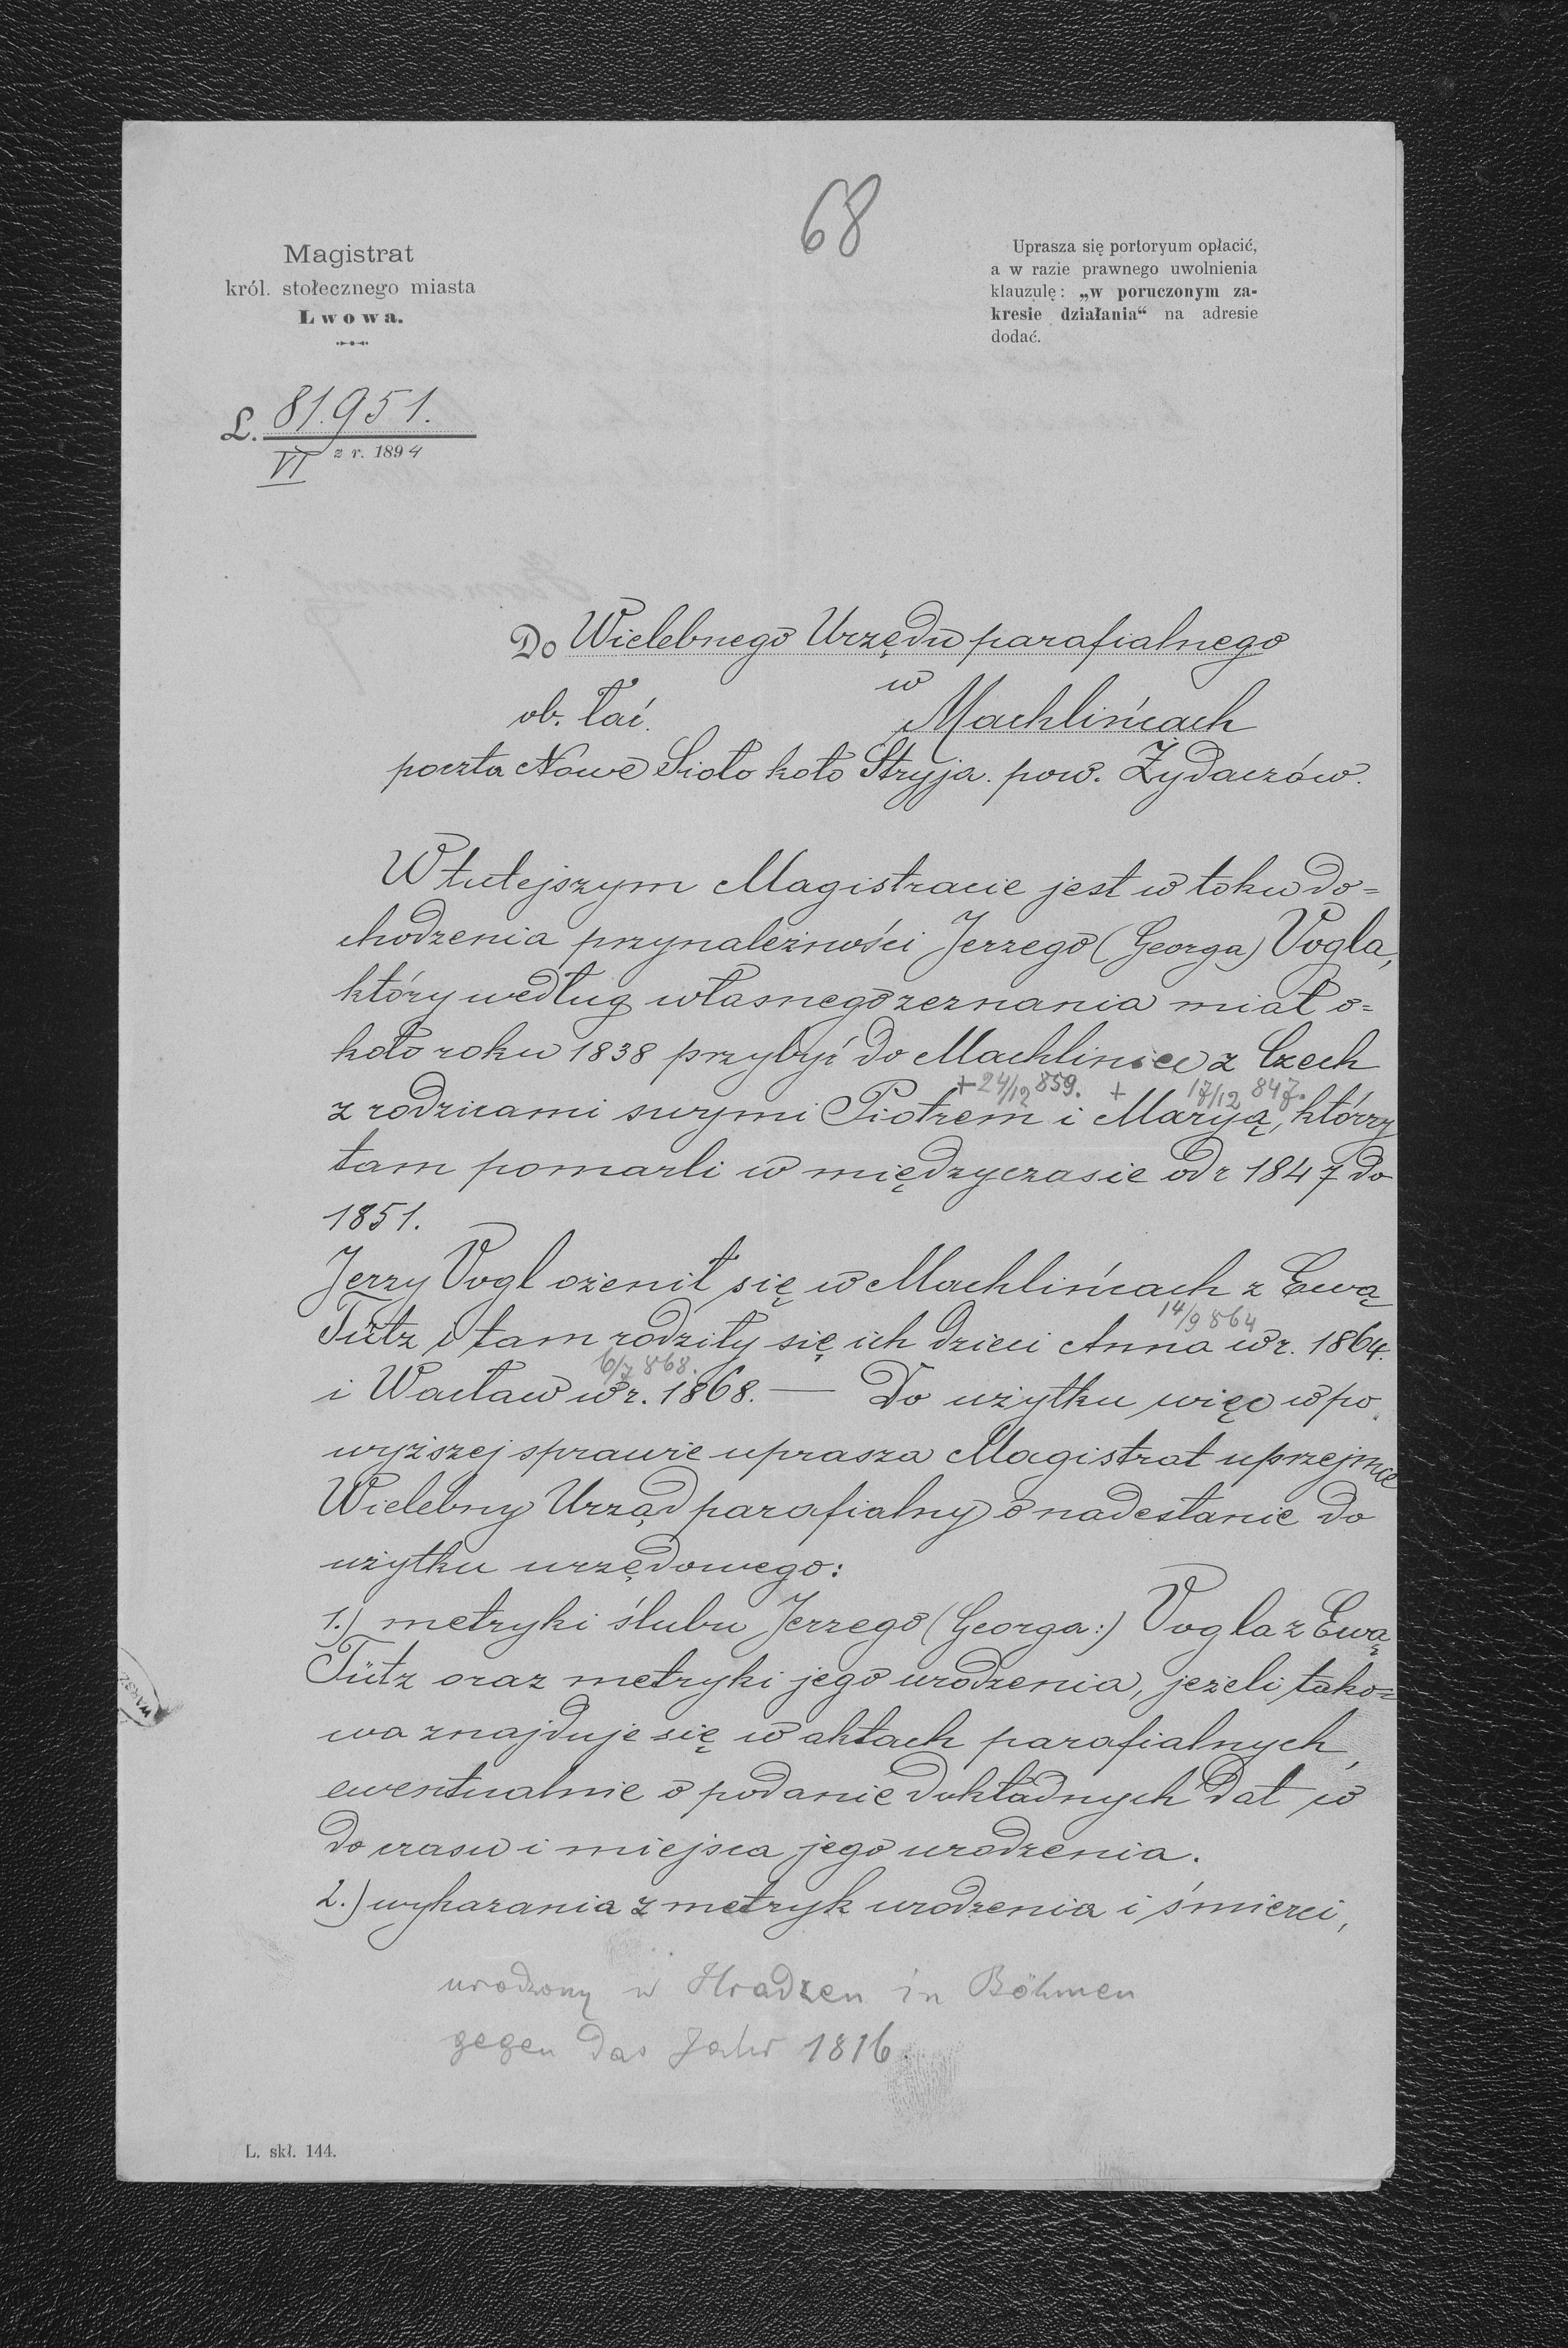 68
Magistrat
król. stołecznego miasta
Lwowa.
Uprasza się portoryum opłacić,
a w razie prawnego uwolnienia
klauzulę: „w poruczonym za-
kresie działania“ na adresie
dodać.
L. 81.951.
VI z r. 1894
Do Wielebnego Urzędu parafialnego
w
ob. łać. Machlińcach
poczta Nowe Sioło koło Stryja. pow. Żydaczów.
W tutejszym Magistracie jest w toku do=
chodzenia przynależności Jerzego (Georga) Vogla,
który według własnego zeznania miał o=
koło roku 1838 przybyć do Machliniec z Czech
+ 24/12 859. + 17/12 847.
z rodzicami swymi Piotrem i Maryą, którzy
tam pomarli w międzyczasie od r 1847 do
1851.
Jerzy Vogl ożenił się w Machlińcach z Ewą
14/9 864
Tütz i tam rodziły się ich dzieci Anna w r. 1864.
6/7 868.
i Wacław w r. 1868. — Do użytku więc w po
wyższej sprawie uprasza Magistrat uprzejmie
Wielebny Urząd parafialny o nadesłanie do
użytku urzędowego:
1.) metryki ślubu Jerzego (Georga:) Vogla z Ewą
Tütz oraz metryki jego urodzenia, jeżeli tako=
wa znajduje się w aktach parafialnych,
ewentualnie o podanie dokładnych dat co
do czasu i miejsca jego urodzenia.
2.) wykazania z metryk urodzenia i śmierci,
urodzony w Hradzen in Böhmen
gegen das Jahr 1816.
L. skł. 144.